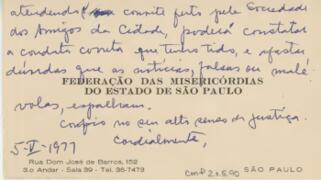 atendendo ao convite feito pela Sociedade
dos Amigos da Cidade, poderá constatar
a conduta correta que tenho tido, e afastar
dúvidas que as notícias, falsas ou malé
FEDERAÇÃO DAS MISERICÓRDIAS
DO ESTADO DE SÃO PAULO
volas, espalharam.
Confio no seu alto senso de justiça.
Cordialmente,
5-VI-1977
Rua Dom José de Barros, 152
3.o Andar - Sala 39 - Tel. 36-7473
SÃO PAULO